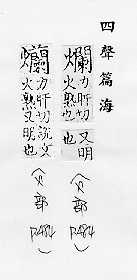 四聲篇海
爛 力肝切火熟也又明也 (火部 P.484)
爤 力肝切說文火熟又明也 (火部 P.484)